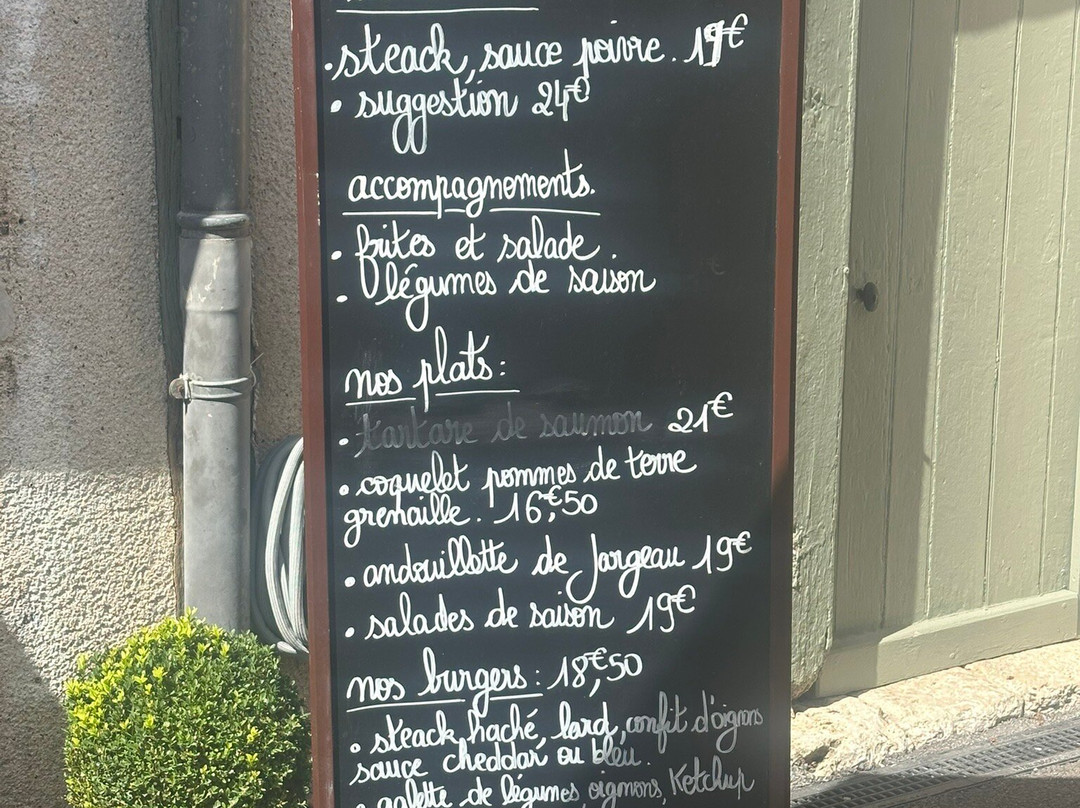 • steack, sauce poivre. 19€
• suggestion 24€
accompagnements.
• frites et salade.
• légumes de saison
nos plats:
• tartare de saumon 21€
• coquelet pommes de terre
grenaille. 16,€50
• andouillette de Jargeau 19€
• salades de saison 19€
nos burgers: 18,€50
• steack haché, lard, confit d'oignons
sauce cheddar ou bleu.
• galette de légumes, oignons, Ketchup